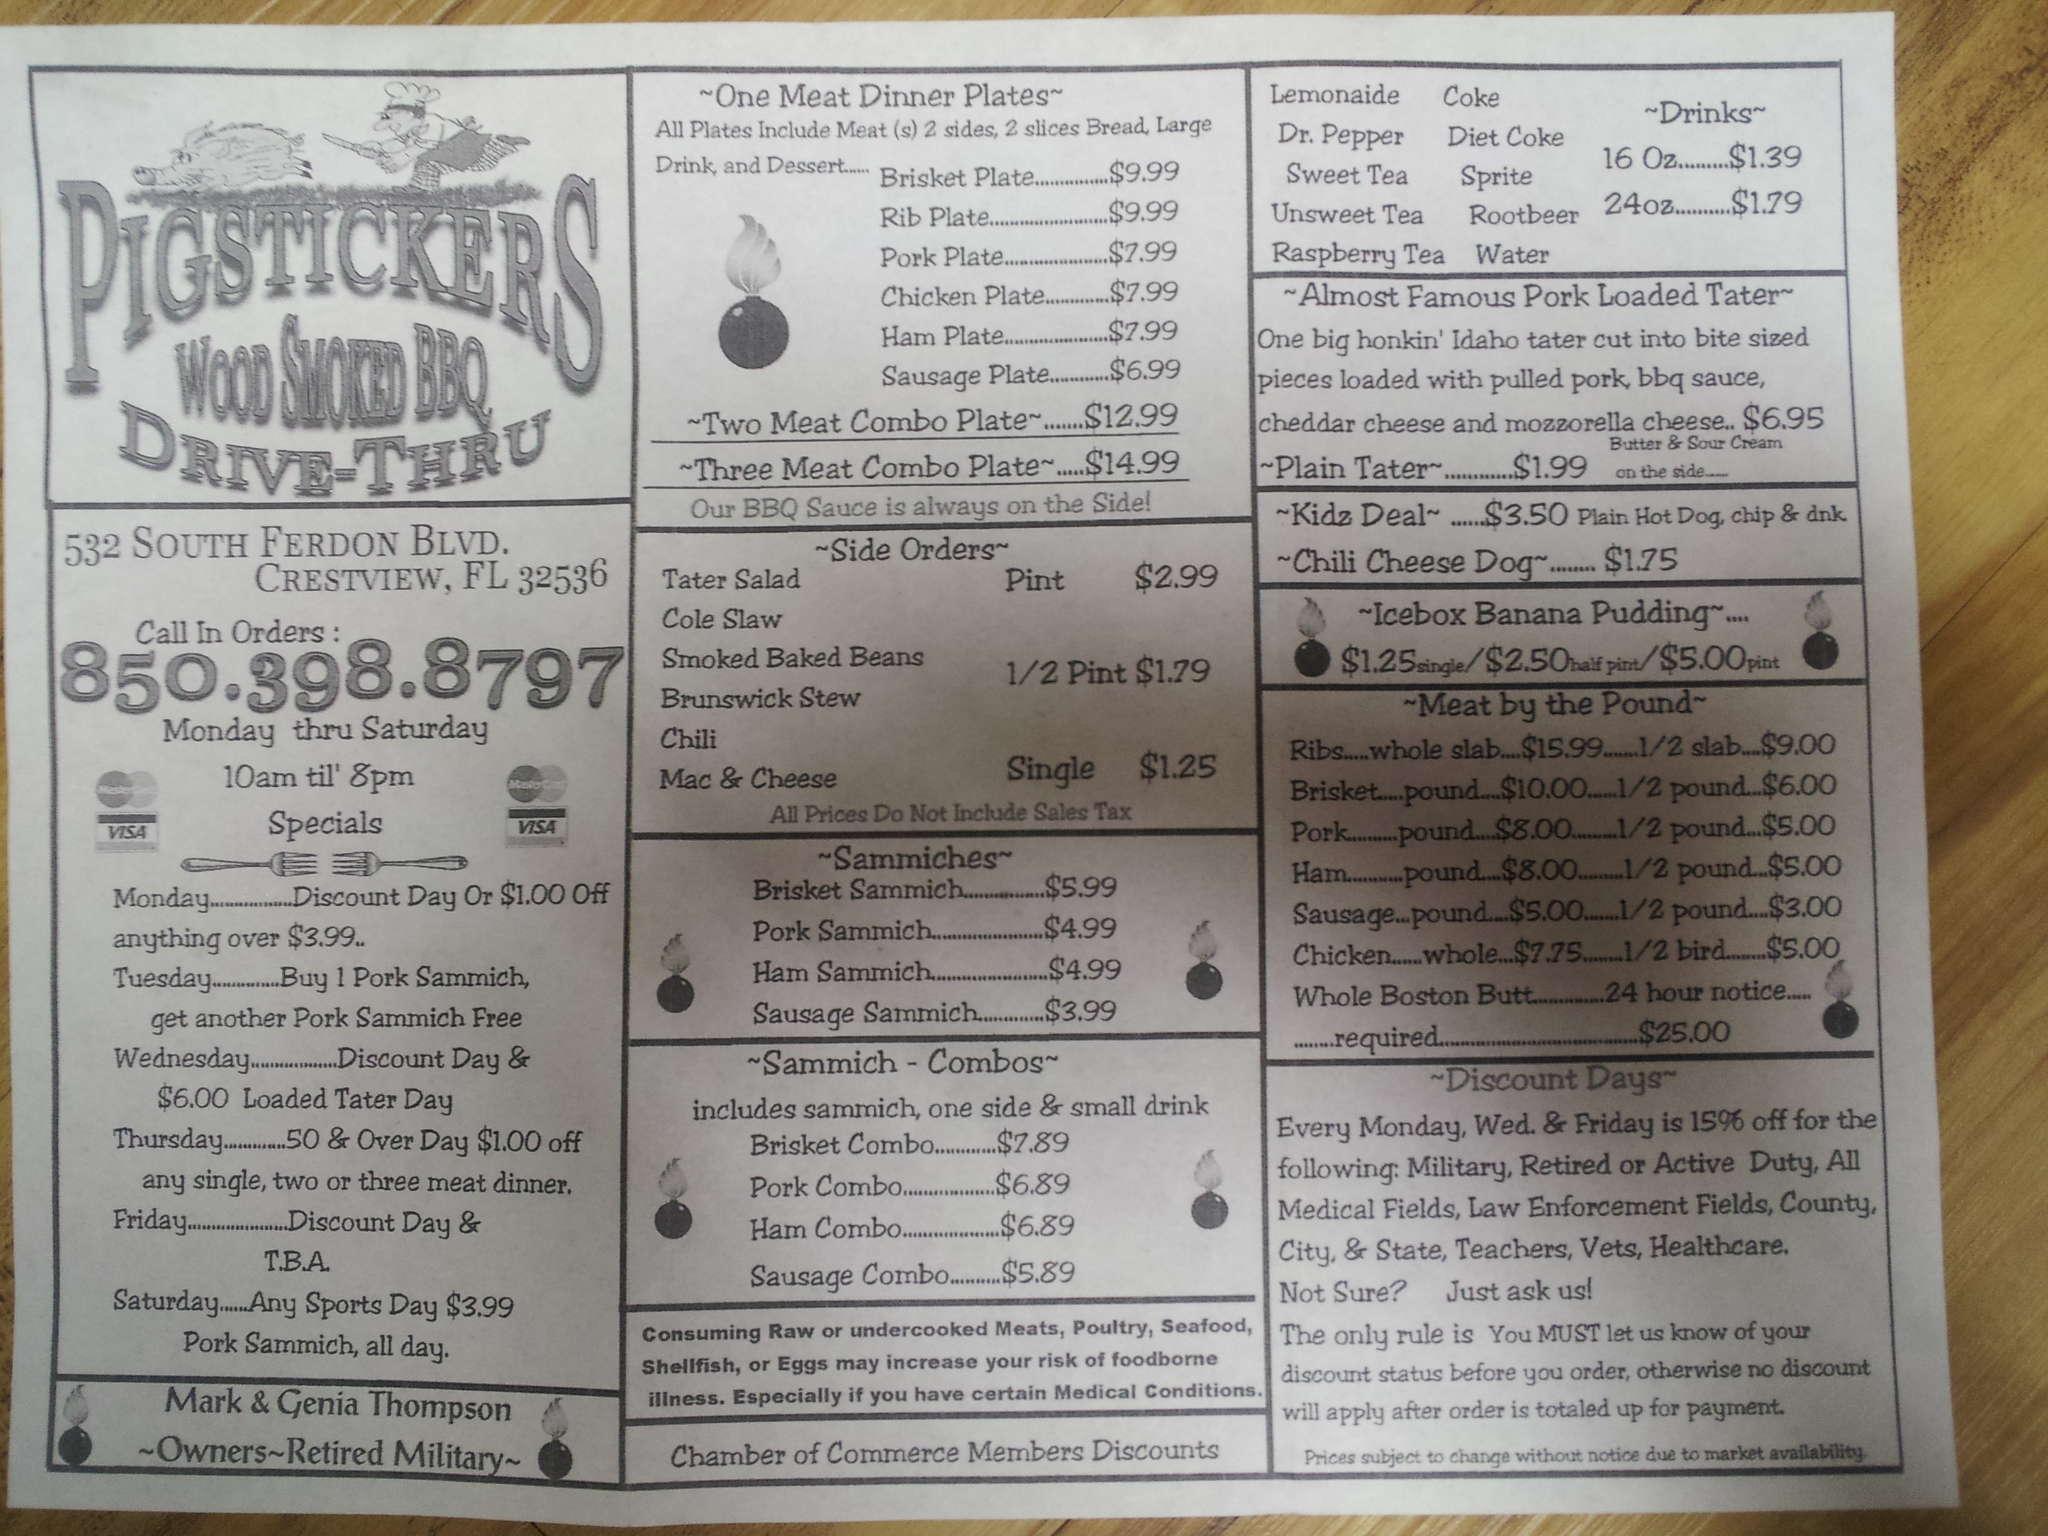 PIGSTICKERS
WOOD SMOKED BBQ
DRIVE-THRU
532 SOUTH FERDON BLVD.
CRESTVIEW, FL 32536
Call In Orders :
850.398.8797
Monday thru Saturday
10am til' 8pm
MasterCard
VISA
MasterCard
VISA
Specials
Monday..................Discount Day Or $1.00 Off
anything over $3.99..
Tuesday...............Buy 1 Pork Sammich,
get another Pork Sammich Free
Wednesday...................Discount Day &
$6.00 Loaded Tater Day
Thursday..............50 & Over Day $1.00 off
any single, two or three meat dinner.
Friday......................Discount Day &
T.B.A.
Saturday......Any Sports Day $3.99
Pork Sammich, all day.
Mark & Genia Thompson
~Owners~Retired Military~
~One Meat Dinner Plates~
All Plates Include Meat (s) 2 sides, 2 slices Bread, Large
Drink, and Dessert......
Brisket Plate................$9.99
Rib Plate.........................$9.99
Pork Plate......................$7.99
Chicken Plate.............$7.99
Ham Plate......................$7.99
Sausage Plate............$6.99
~Two Meat Combo Plate~........$12.99
~Three Meat Combo Plate~.....$14.99
Our BBQ Sauce is always on the Side!
~Side Orders~
Tater Salad Pint $2.99
Cole Slaw
Smoked Baked Beans 1/2 Pint $1.79
Brunswick Stew
Chili
Mac & Cheese Single $1.25
All Prices Do Not Include Sales Tax
~Sammiches~
Brisket Sammich.................$5.99
Pork Sammich........................$4.99
Ham Sammich.........................$4.99
Sausage Sammich..............$3.99
~Sammich - Combos~
includes sammich, one side & small drink
Brisket Combo.............$7.89
Pork Combo....................$6.89
Ham Combo.....................$6.89
Sausage Combo...........$5.89
Consuming Raw or undercooked Meats, Poultry, Seafood,
Shellfish, or Eggs may increase your risk of foodborne
illness. Especially if you have certain Medical Conditions.
Chamber of Commerce Members Discounts
~Drinks~
Lemonaide Coke
Dr. Pepper Diet Coke
16 Oz..........$1.39
Sweet Tea Sprite
24oz...........$1.79
Unsweet Tea Rootbeer
Raspberry Tea Water
~Almost Famous Pork Loaded Tater~
One big honkin' Idaho tater cut into bite sized
pieces loaded with pulled pork, bbq sauce,
cheddar cheese and mozzorella cheese.. $6.95
~Plain Tater~.............$1.99 Butter & Sour Cream
on the side......
~Kidz Deal~ ......$3.50 Plain Hot Dog, chip & dnk.
~Chili Cheese Dog~........ $1.75
~Icebox Banana Pudding~....
$1.25single/$2.50half pint/$5.00pint
~Meat by the Pound~
Ribs.....whole slab....$15.99.......1/2 slab....$9.00
Brisket.....pound....$10.00......1/2 pound...$6.00
Pork..........pound....$8.00.........1/2 pound...$5.00
Ham...........pound....$8.00.........1/2 pound...$5.00
Sausage...pound....$5.00.......1/2 pound....$3.00
Chicken......whole...$7.75........1/2 bird........$5.00
Whole Boston Butt..............24 hour notice.....
........required........................................$25.00
~Discount Days~
Every Monday, Wed. & Friday is 15% off for the
following: Military, Retired or Active Duty, All
Medical Fields, Law Enforcement Fields, County,
City, & State, Teachers, Vets, Healthcare.
Not Sure? Just ask us!
The only rule is You MUST let us know of your
discount status before you order, otherwise no discount
will apply after order is totaled up for payment.
Prices subject to change without notice due to market availability.